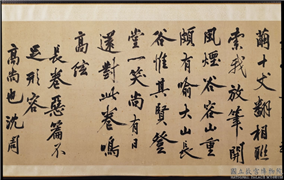 繭十丈相聯
索我放筆開
風煙谷容山重
頗有喻大山長
谷惟其賢登
堂一笑尚有日
還對此卷鳴
高絃
長卷惡篇不
足形容
高尚也沈周
國立故宮博物院
NATIONAL PALACE MUSEUM